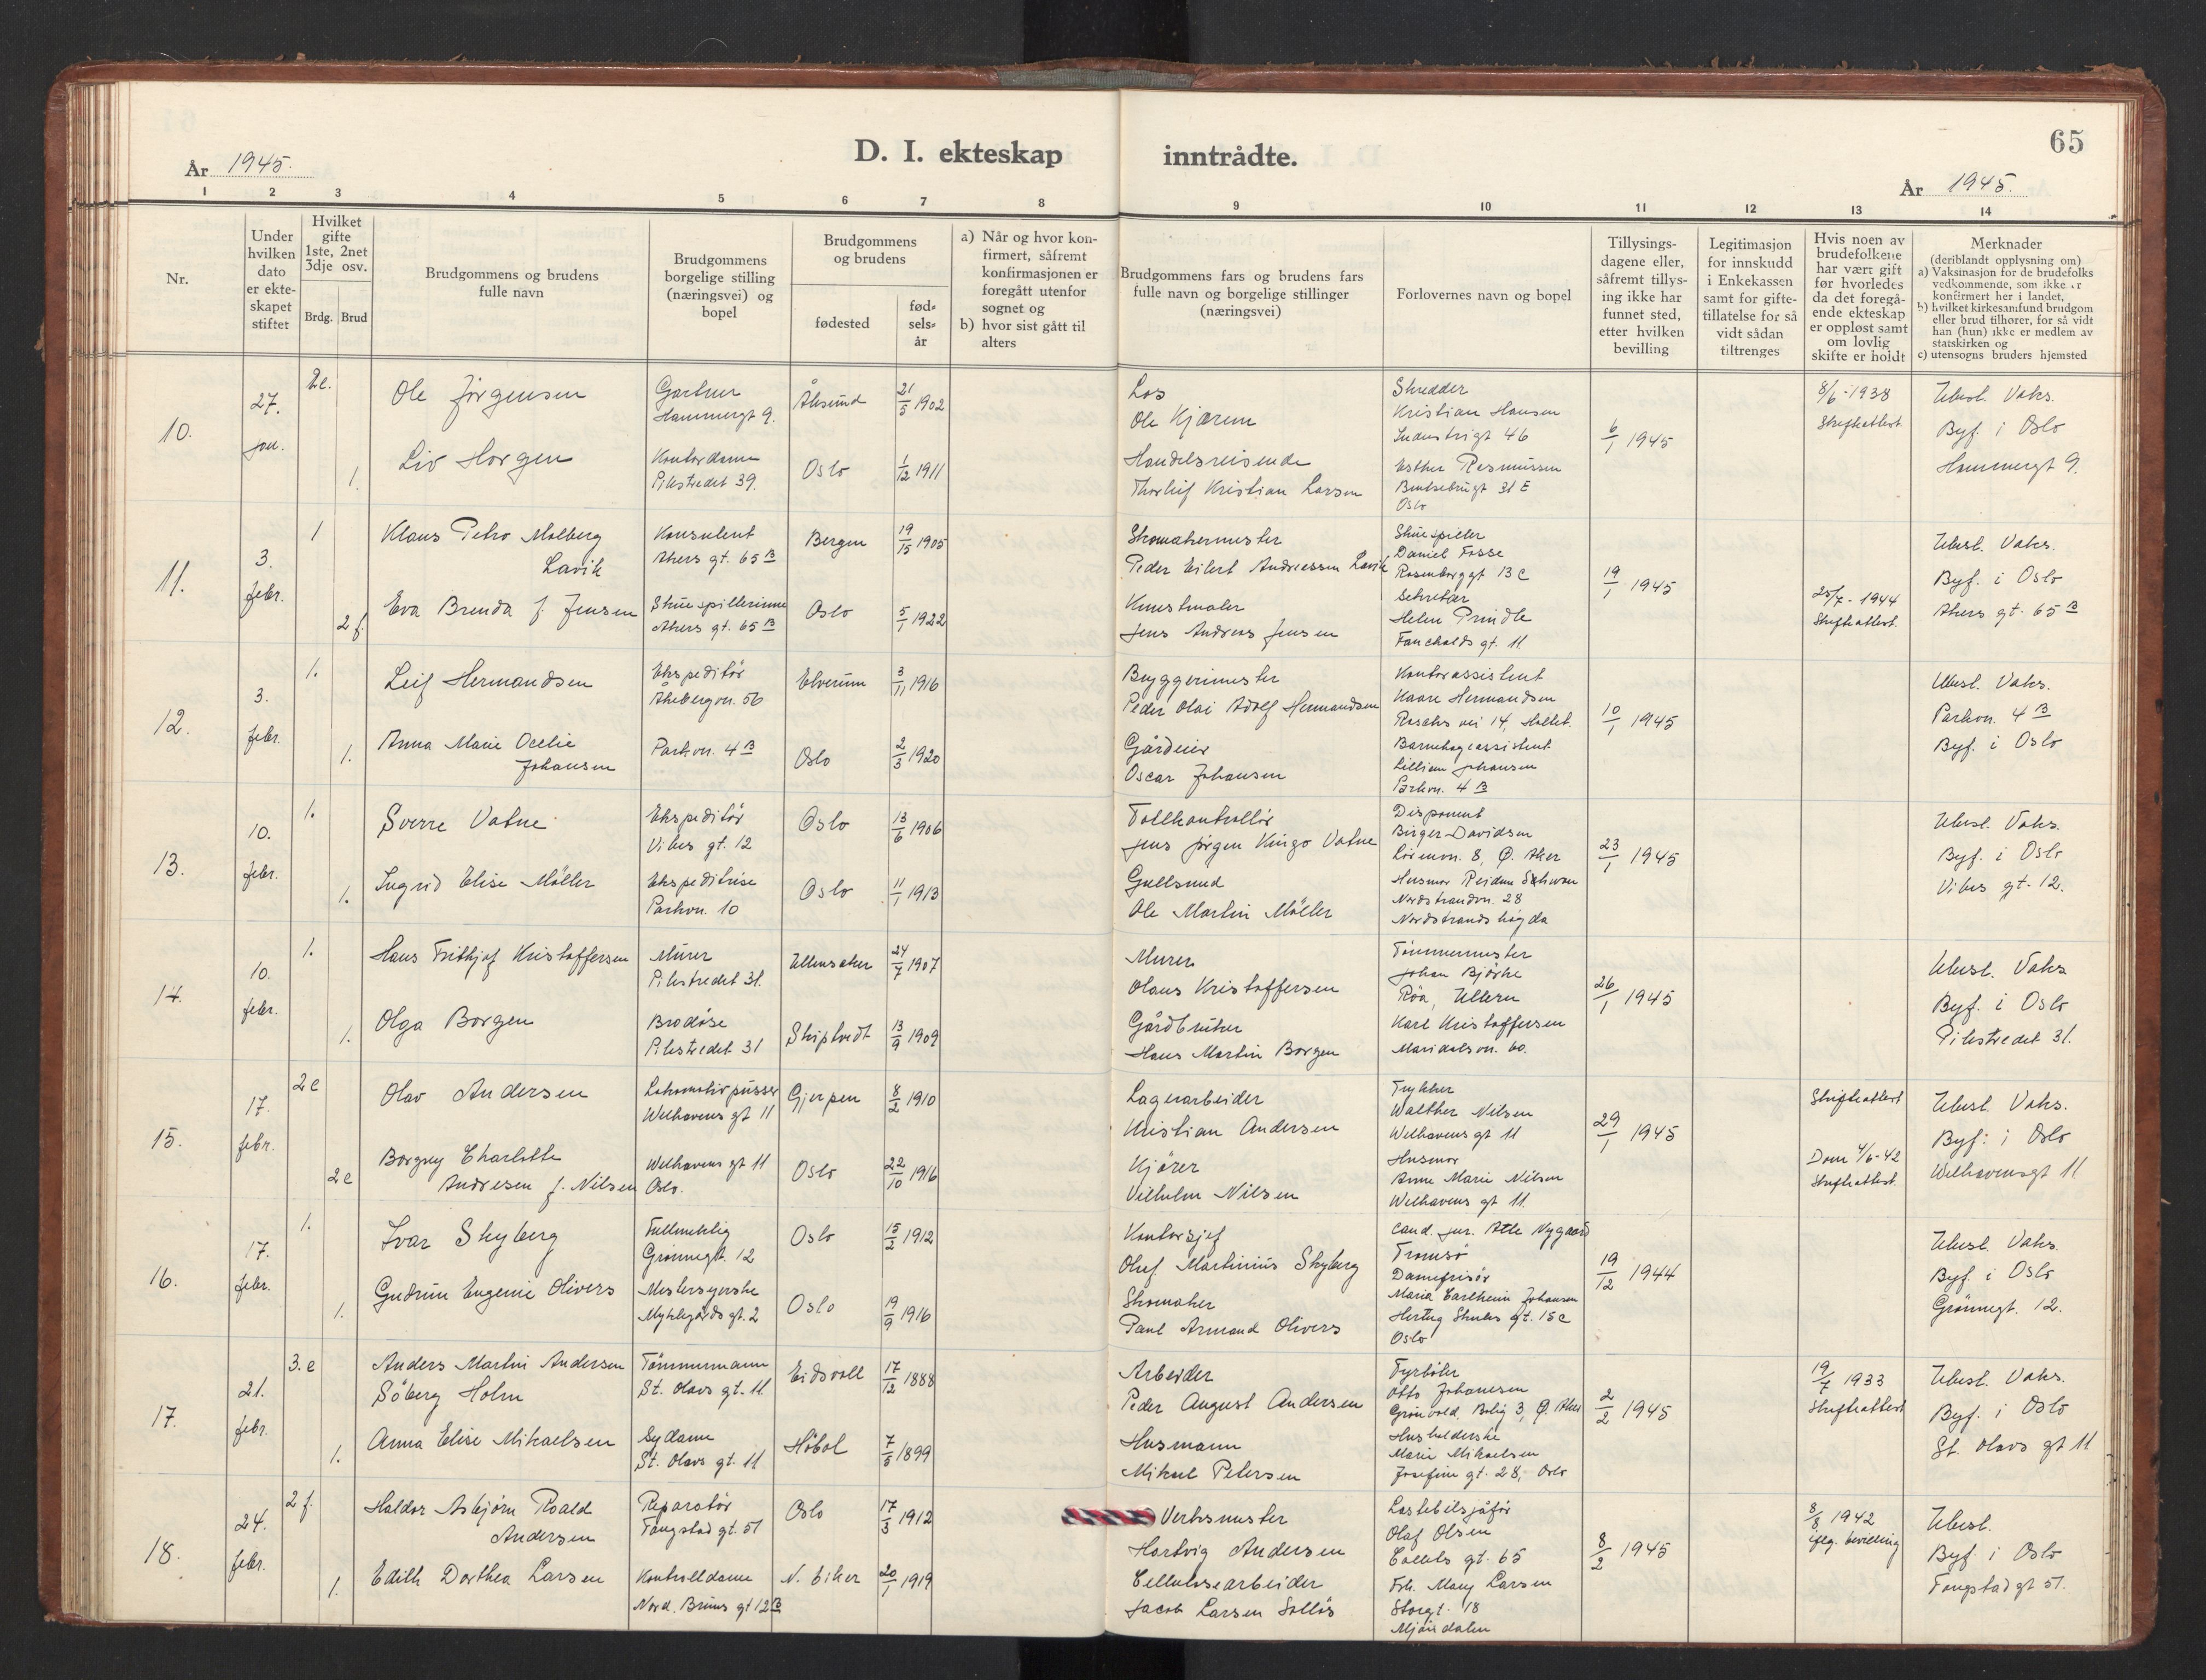 D. I. ekteskap inntrådte.
65
År 1945.
År 1945.
1 2 3 4 5 6 7 8 9 10 11 12 13 14
Nr.
Under hvilken dato er ekteskapet stiftet
Hvilket gifte 1ste, 2net 3dje osv.
Brdg. Brud
Brudgommens og brudens fulle navn
Brudgommens borgelige stilling (næringsvei) og bopel
Brudgommens og brudens
fødested
fødselsår
a) Når og hvor konfirmert, såfremt konfirmasjonen er foregått utenfor sognet og
b) hvor sist gått til alters
Brudgommens fars og brudens fars fulle navn og borgelige stillinger (næringsvei)
Forlovernes navn og bopel
Tillysingsdagene eller, såfremt tillysing ikke har funnet sted, etter hvilken bevilling
Legitimasjon for innskudd i Enkekassen samt for giftetillatelse for så vidt sådan tiltrenges
Hvis noen av brudefolkene har vært gift før hvorledes da det foregående ekteskap er oppløst samt om lovlig skifte er holdt
Merknader
(deriblandt opplysning om)
a) Vaksinasjon for de brudefolks vedkommende, som ikke er konfirmert her i landet,
b) hvilket kirkesamfund brudgom eller brud tilhører, for så vidt han (hun) ikke er medlem av statskirken og
c) utensogns bruders hjemsted
10.
27. jan.
2e.
Ole Jörgensen
Gartner
Hammergt 9.
Åksund
21/5 1902
1.
Liv Horgen
Kontordame
Pilestredet 39.
Oslo
1/12 1911
Los
Ole Kjærem
Handelsreisende
Thorleif Kristian Larsen
Skredder
Kristian Hansen
Industrigt 46
Esther Rasmussen
Bentsebrugt 31 E
Oslo
6/1 1945
8/6-1938
Skifteattest
Utest. Vaks.
Byf. i Oslo
Hammergt 9.
11.
3. febr.
1
Klaus Petro Molberg
Lavik
Konsulent
Akers gt. 65 B
Bergen
19/15 1905
2 f.
Eva Brenda f. Jensen
Skuespillerinne
Akers gt. 65 B
Oslo
5/1 1922
Skomakermester
Peder Eilert Andreassen Lavik
Kunstmaler
Jens Andreas Jensen
Skuespiller
Daniel Fosse
Rosenborggt 13 C
Sekretær
Helen Prindle
Fauchalds gt. 11
19/1 1945
25/7-1944
Skifteattest.
Utest. Vaks.
Byf. i Oslo
Akers gt. 65 B
12.
3. febr.
1.
Leif Hermandsen
Ekspeditör
Åkebergvn. 56
Elverum
3/11 1916
1.
Anna Marie Ocelie
Johansen
Parkvn. 4 B
Oslo
2/3 1920
Bryggerimester
Peder Olai Adolf Hermandsen
Gårdeier
Oscar Johansen
Kontorassistent
Kaare Hermandsen
Raschs vei 14, Hallet.
Barnehageassistent
Lillian Johansen
Parkvn. 4 B
10/1 1945
Utest. Vaks.
Parkvn. 4 B
Byf. i Oslo
13.
10. febr.
1.
Sverre Vatne
Ekspeditör
Vibes gt. 12
Oslo
13/6 1906
1.
Ingrid Elise Möller
Ekspeditrise
Parkvn. 10
Oslo
11/1 1913
Tollkontrollör
Jens Jörgen Kingo Vatne
Gullsmed
Ole Martin Möller
Disponent
Birger Davidsen
Lörenvn. 8, Ø. Aker
Husmor Reidun
Nordstrandvn. 28
Nordstrandshögda
23/1 1945
Utest. Vaks.
Byf. i Oslo
Vibes gt. 12.
14.
10. febr.
1.
Hans Frithjof Kristoffersen
Murer
Pilestredet 31.
Ullensaker
24/7 1907
1.
Olga Borgen
Brodöse
Pilestredet 31
Skiptvedt
13/9 1909
Murer
Olaus Kristoffersen
Gårdbruker
Hans Martin Borgen
Tömmermester
Johan Bjørke
Röa, Ullern
Karl Kristoffersen
Maridalsvn. 60.
26/1 1945
Utest. Vaks
Byf. i Oslo
Pilestredet 31.
15.
17. febr.
2e
Olav Andersen
Lokomotivpusser
Welhavens gt 11
Gjerpen
8/2 1910
2e
Borgny Charlotte
Andresen f. Nilsen
Welhavens gt 11
Oslo.
Oslo
22/10 1916
Lagerarbeider
Kristian Andersen
Kjörer
Vilhelm Nilsen
Trykker
Walther Nilsen
Welhavens gt 11
Husmor
Anne Marie Nilsen
Welhavens gt 11.
29/1 1945
Skifteattest
Dom 4/6-42
Skifteattest.
Utest. Vaks.
Byf. i Oslo
Welhavensgt 11
16.
17. febr.
1.
Ivar Skyberg
Fullmektig
Grönnegt. 12
Oslo
15/2 1912
1.
Gudrun Eugenie Olivers
Mestersyerske
Myklegårds gt. 2
Oslo
19/9 1916
Kontorsjef
Oluf Martinius Skyberg
Skomaker
Paul Armand Olivers
Cand. jur. Atle Nygaard
Tromsö
Damefrisör
Maria Carlheim Johansen
Hertug Skules gt. 15 C
Oslo
19/12 1944
Utest. Vaks.
Byf. i Oslo
Grönnegt. 12.
17.
21. febr.
3.e
Anders Martin Andersen
Söberg Holm
Tömmermann
St. Olavs gt. 11
Eidsvoll
17/12 1888
1.
Anna Elise Mikaelsen
Sydame
St. Olavs gt. 11
Höbol
7/5 1899
Arbeider
Peder August Andersen
Husmann
Mikael Petersen
Fyrböter
Otto Johansen
Grönvold, Bolig 3, Ø. Aker
Husholderske
Marie Mikaelsen
Josefine gt. 28, Oslo
2/2 1945
19/7 1933
Skifteattest
Utest. Vaks.
Byf. i Oslo
St. Olavs gt 11
18.
24. febr.
2 f.
Haldor Asbjörn Roald
Andersen
Reparatör
Fougstad gt. 51
Oslo
17/3 1912
1.
Edith Dorthea Larsen
Kontrolldame
Nord. Bruns gt 12 B
N. Eiker
20/1 1919
Verksmester
Hartvig Andersen
Cellulosearbeider
Jacob Larsen Solløs
Lastebilsjåför
Olaf Olsen
Colletts gt. 65
Frk. Mary Larsen
Storgt. 18
Mjöndalen
8/2 1945
8/8 1942
iflg. bevilling
Utest.
Byf. i Oslo
Fougstad gt 51.